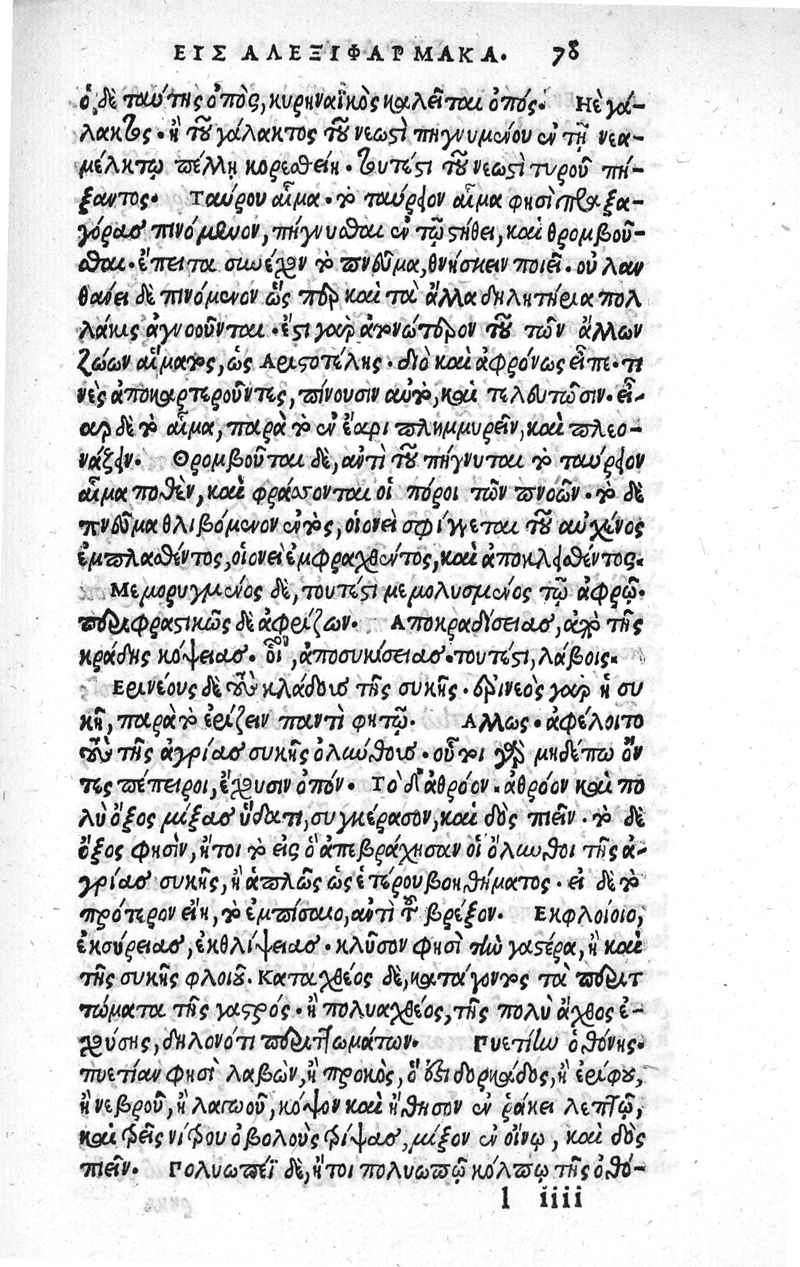 ΕΙΣ ΑΛΕΞΙΦΑΡΜΑΚΑ. 78
ὁ δὲ ταύτης ὀπὸς, κυρηναϊκὸς καλεῖται ὀπός. Ηὲ γά-
λακτος. ἢ τοῦ γάλακτος τοῦ νεωστὶ πηγνυμένου ἐν τῇ νεα-
μέλκτῳ πέλλῃ κορεσθείη. τουτέστι τοῦ νεωστὶ τυροῦ πή-
ξαντος. Ταύρου αἷμα. τὸ ταύρειον αἷμα φησὶ πραξα-
γόρας πινόμενον, πήγνυσθαι ἐν τῷ στήθει, καὶ θρομβοῦ-
σθαι. ἔπειτα συνέχον τὸ πνεῦμα, θνήσκειν ποιεῖ. οὐ λαν
θάνει δὲ πινόμενον ὥσπερ καὶ τὰ ἄλλα δηλητήρια πολ
λάκις ἀγνοοῦνται. ἔστι γὰρ ἀγνώτερον τοῦ τῶν ἄλλων
ζώων αἵματος, ὡς Αριστοτέλης. διὸ καὶ ἀφρόνως εἶπε. τι
νὲς ἀποκαρτεροῦντες, πίνουσιν αὐτὸ, καὶ τελευτῶσιν. εἶ-
αρ δὲ τὸ αἷμα, παρὰ τὸ ἐν ἔαρι πλημμυρεῖν, καὶ πλεο-
νάζειν. Θρομβοῦται δὲ, αὐτὶ τοῦ πήγνυται τὸ ταύρειον
αἷμα ποθὲν, καὶ φράσσονται οἱ πόροι τῶν πνοῶν. τὸ δὲ
πνεῦμα θλιβόμενον ἐντὸς, οἱονεὶ σφίγγεται τοῦ αὐχένος
ἐμπλασθέντος, οἱονεὶ ἐμφραχθέντος, καὶ ἀποκλεισθέντος.
Μεμορυγμένος δὲ, τουτέστι μεμολυσμένος τῷ ἀφρῷ.
περιφραστικῶς δὲ ἀφρίζων. Αποκραδίσειας, ἀπὸ τῆς
κράδης κόψειας. οἷον, ἀποσυκίσειας. τουτέστι, λάβοις.
Ερινέους δὲ τοὺς κλάδους τῆς συκῆς. ἐρινεὸς γὰρ ἡ συ
κῆ, παρὰ τὸ ἐρίζειν παντὶ φητῷ. Αλλως. ἀφέλοιτο
τοὺς τῆς ἀγρίας συκῆς ὀλύνθους. οὗτοι γὰρ μηδέπω ὄν
τες πέπειροι, ἔχουσιν ὀπόν. Τὸ δ' ἀθρόον. ἀθρόον καὶ πο
λὺ ὄξος μίξας ὕδατι, συγκέρασον, καὶ δὸς πιεῖν. τὸ δὲ
ὄξος φησὶν, ἤτοι τὸ εἰς ὃ ἀπεβράχησαν οἱ ὄλυνθοι τῆς ἀ-
γρίας συκῆς, ἢ ἁπλῶς ὡς ἑτέρου βοηθήματος. εἰ δὲ τὸ
πρότερον εἴη, τὸ ἐμπίσαιο, αὐτὶ τοῦ βρέξον. Εκφλοίοιο,
ἐκσύρειας, ἐκθλίψειας. κλῦσον φησὶ τὴν γαστέρα, ἢ καὶ
τῆς συκῆς φλοιοῦ. Καταχθέος δὲ, κατάγοντος τὰ περιτ
τώματα τῆς γαστρός. ἢ πολυαχθέος, τῆς πολὺ ἄχθος ἐ-
χούσης, δηλονότι περιττωμάτων. Πυετίην ὀθόνης.
πυετίαν φησὶ λαβὼν, ἢ προκὸς, ὅ ἐστι δορκάδος, ἢ ἐρίφου,
ἢ νεβροῦ, ἢ λαγωοῦ, κόψον καὶ ἤθησον ἐν ῥάκει λεπτῷ,
καὶ τρεῖς νίτρου ὀβολοὺς τρίψας, μίξον ἐν οἴνῳ, καὶ δὸς
πιεῖν. Πολυωπέϊ δὲ, ἤτοι πολυωπῷ κόλπῳ τῆς ὀθό-
l iiii